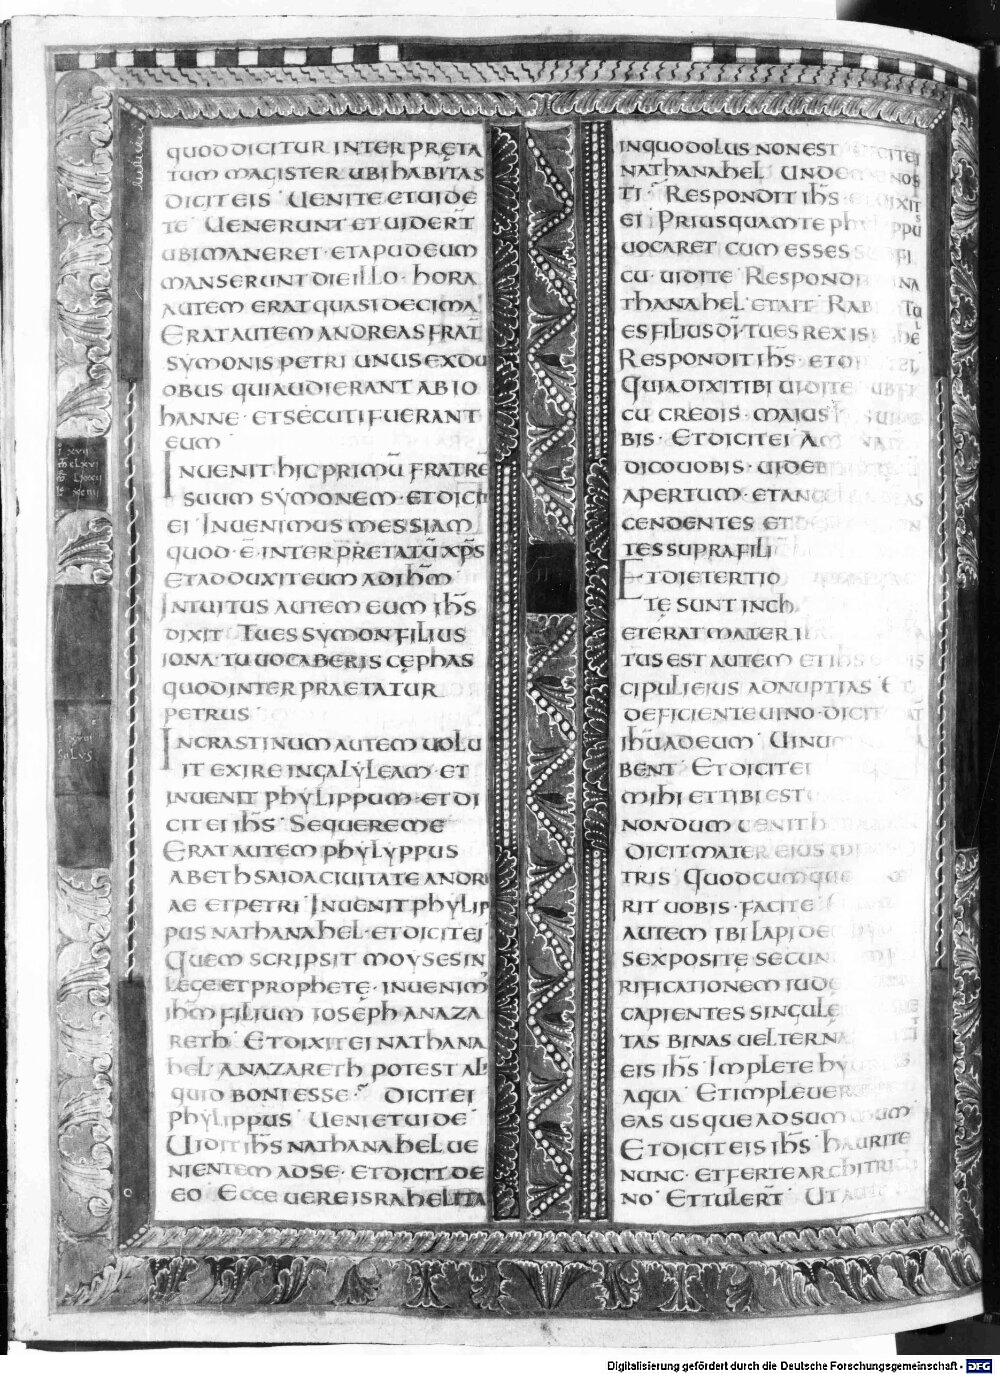 QUOD DICITUR INTERPRĘTA
TUM MAGISTER UBI HABITAS
DICIT EIS · UENITE ET UIDE
TE · UENERUNT ET UIDER̄T
UBI MANERET · ET APUD EUM
MANSERUNT DIE ILLO · HORA
AUTEM ERAT QUASI DECIMA
ERAT AUTEM ANDREAS FRAT̄
SYMONIS PETRI UNUS EX DU
OBUS QUI AUDIERANT AB IO
HANNE · ET SECUTI FUERANT
EUM ·
INUENIT HIC PRIMŪ FRATRĒ
SUUM SYMONEM · ET DICIT
EI · INUENIMUS MESSIAM
QUOD · Ē · INTERPRETATŪ XP̄S
ET ADDUXIT EUM AD IHM̄
INTUITUS AUTEM EUM IHS̄
DIXIT · TU ES SYMON FILIUS
IONA · TU UOCABERIS CĘPHAS
QUOD INTERPRAETATUR
PETRUS ·
IN CRASTINUM AUTEM UOLU
IT EXIRE IN GALYLEAM · ET
INUENIT PHYLIPPUM · ET DI
CIT EI IHS̄ · SEQUERE ME
ERAT AUTEM PHYLYPPUS
A BETHSAIDA CIUITATE ANDRE
AE ET PETRI · INUENIT PHYLIP
PUS NATHANAHEL · ET DICIT EI
QUEM SCRIPSIT MOYSES IN
LEGE ET PROPHETĘ · INUENIM
IHM̄ FILIUM IOSEPH A NAZA
RETH · ET DIXIT EI NATHANA
HEL · A NAZARETH POTEST ALI
QUID BONI ESSE · DICIT EI
PHYLIPPUS · UENI ET UIDE ·
UIDIT IHS̄ NATHANAHEL UE
NIENTEM AD SE · ET DICIT DE
EO · ECCE UERE ISRAHELITA
IN QUO DOLUS NON EST · DICIT EI
NATHANAHEL · UNDE ME NOS
TI · RESPONDIT IHS̄ · ET DIXIT
EI · PRIUSQUAM TE PHYLIPPUS
UOCARET CUM ESSES SUB FI
CU · UIDI TE · RESPONDIT NA
THANAHEL · ET AIT · RABBI · TU
ES FILIUS DĪ · TU ES REX ISRAHEL
RESPONDIT IHS̄ · ET DIXIT EI ·
QUIA DIXI TIBI UIDI TE SUB FI
CU CREDIS · MAIUS UIDE
BIS · ET DICIT EI AMEN AMEN
DICO UOBIS · UIDEBITIS
APERTUM · ET ANGELOS AS
CENDENTES ET
TES SUPRA FILI
ET DIE TERTIO
TĘ SUNT IN CH
ET ERAT MATER I
TUS EST AUTEM ET IHS̄ ET DIS
CIPULI EIUS AD NUPTIAS · ET
DEFICIENTE UINO · DICIT MAT̄
IHŪ AD EUM · UINUM
BENT · ET DICIT EI
MIHI ET TIBI EST
NONDUM UENIT H
DICIT MATER EIUS MINIS
TRIS · QUODCUMQUE
RIT UOBIS · FACITE ·
AUTEM IBI LAPIDE
SEX POSITĘ SECUN
RIFICATIONEM IUDE
CAPIENTES SINGULĘ
TAS BINAS UEL TERNAS
EIS IHS̄ · IMPLETE HYDRIAS
AQUA · ET IMPLEUER
EAS USQUE AD SUMMUM
ET DICIT EIS IHS̄ · HAURITE
NUNC · ET FERTE ARCHITRICLI
NO · ET TULER̄T · UT AUT
Digitalisierung gefördert durch die Deutsche Forschungsgemeinschaft - DFG